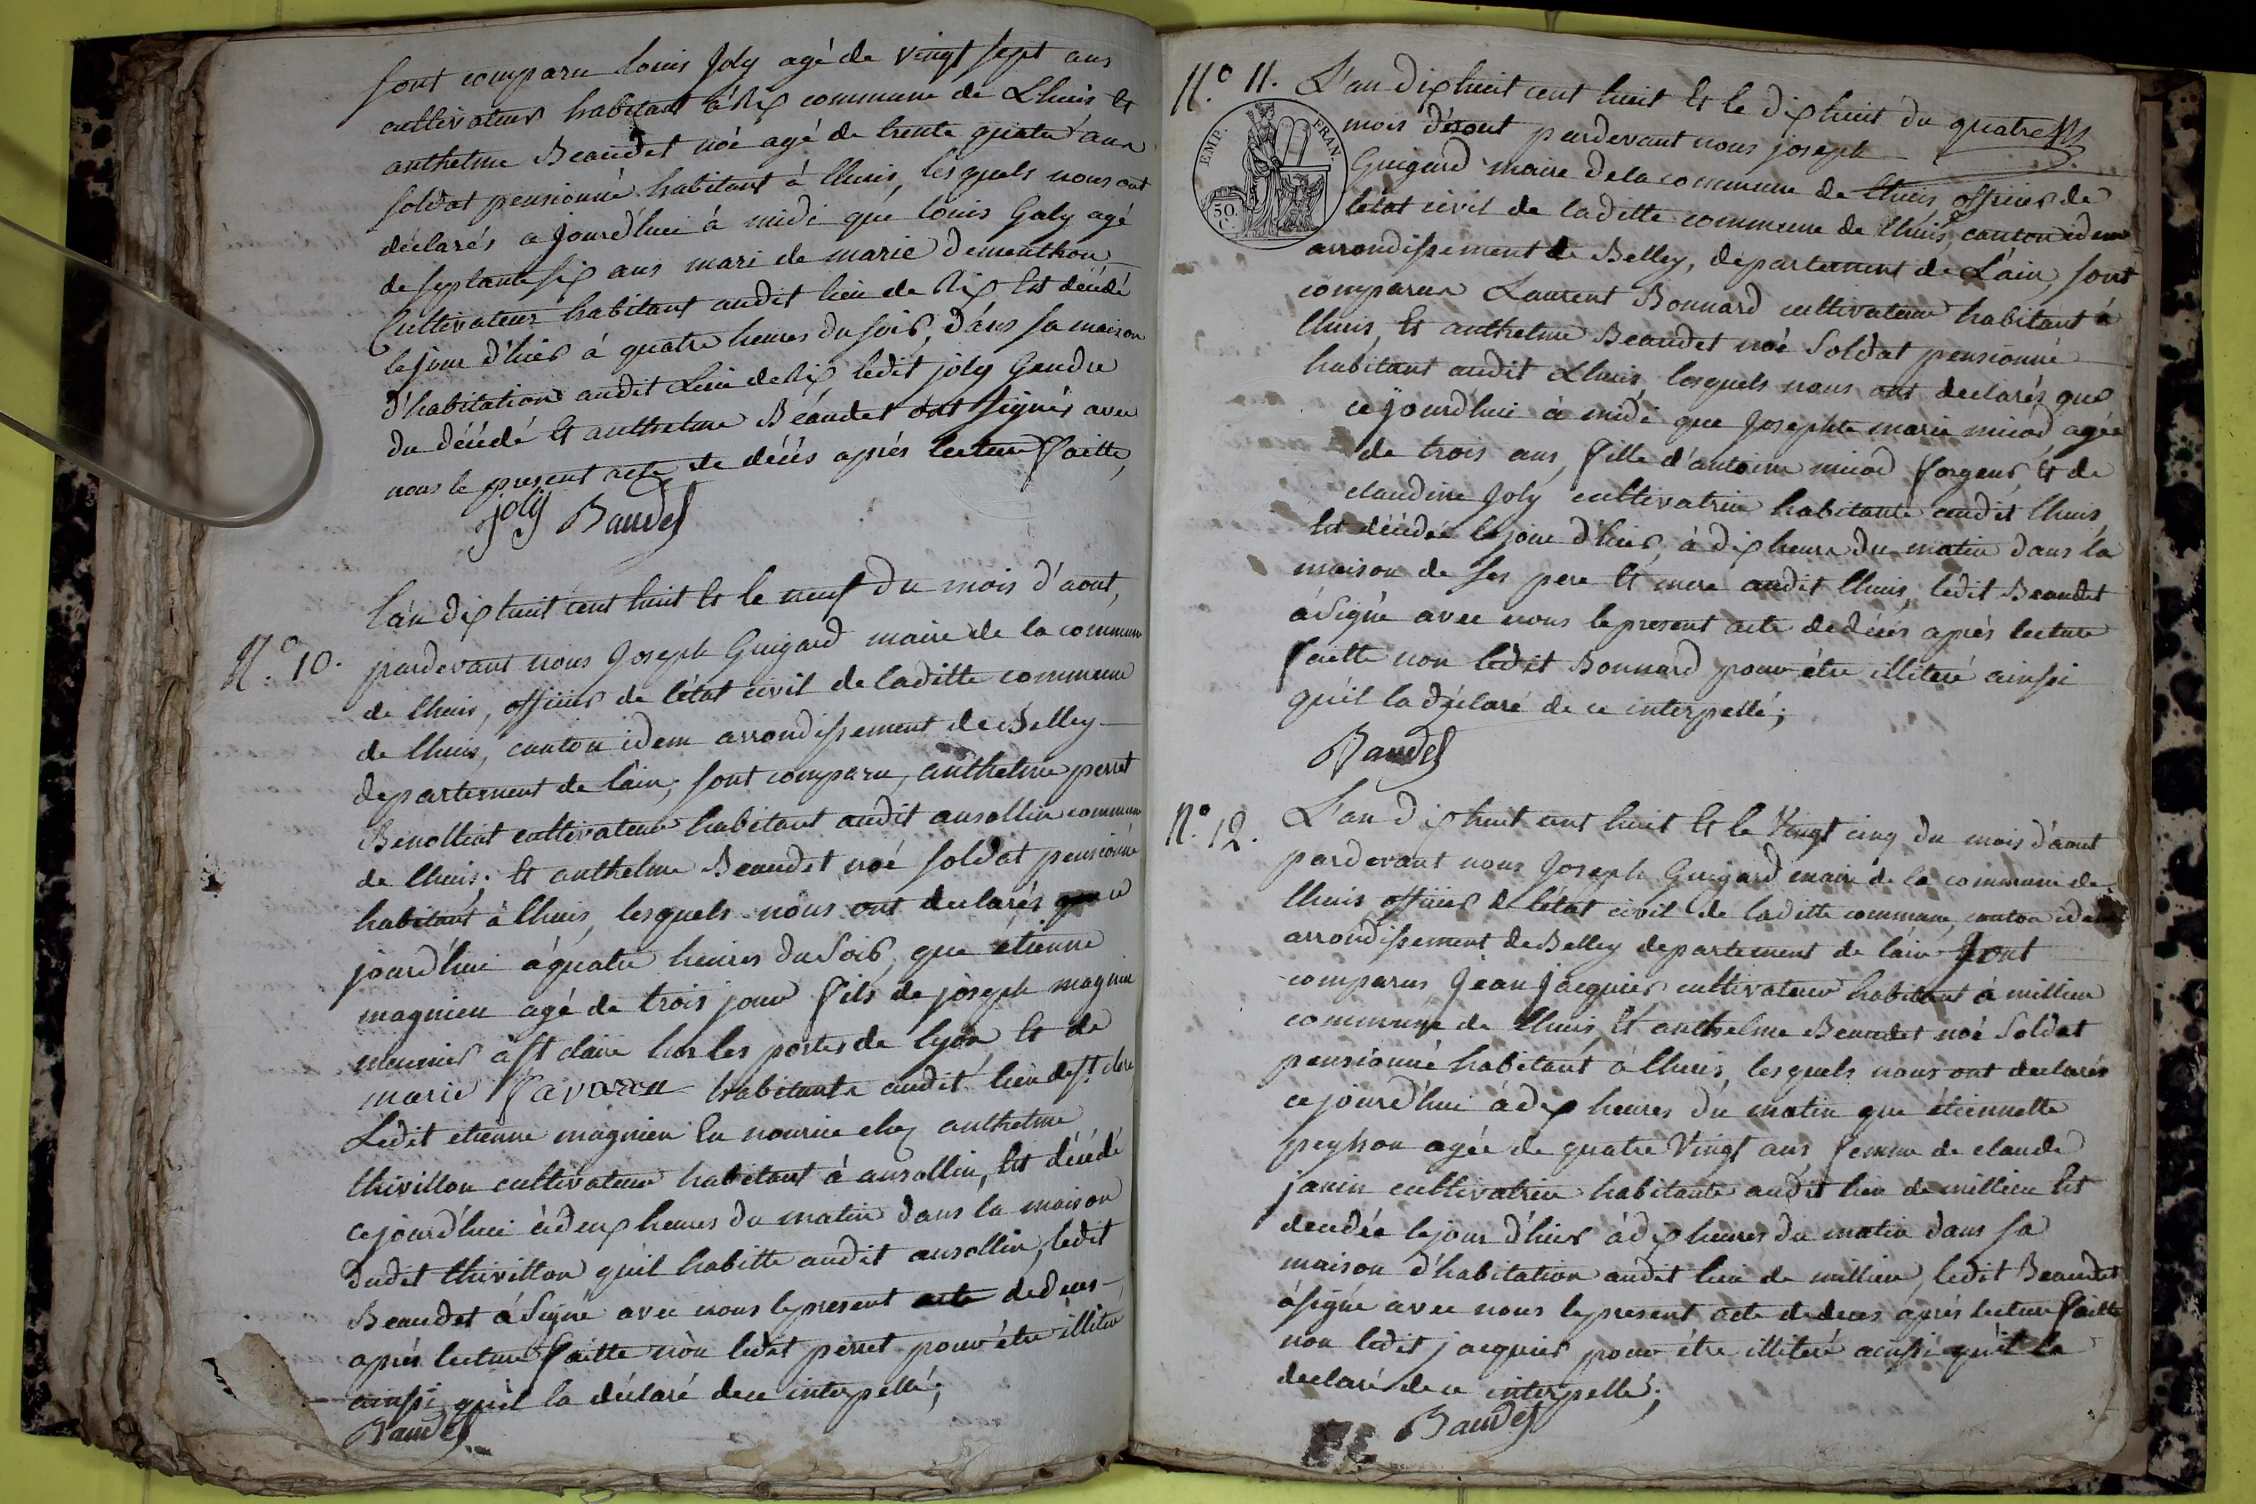 sont comparu louis Joly agé de vingt sept ans
cultivateur habitant à Rix commune de Lhuis Et
anthelme Beaudet noé agé de trente quatre ans
soldat pensionné habitant à lhuis, lesquels nous ont
déclarés a jourd'hui à midi que louis Galy agé
de septante six ans mari de marie dementhon
Cultivateur habitant audit lieu de Rix Est décédé
le jour d'hier à quatre heures du soir, dans sa maison
d'habitation audit Lieu de Rix ledit joly Gendre
du décédé Et anthelme Béaudet ont signés avec
nous le present acte de décés aprés lecture faitte,
joly Baudet
N.o 10.
l'an dix huit cent huit Et le neuf du mois d'aout,
pardevant nous Joseph Guigard maire de la commune
de lhuis, officier de l'état civil de laditte commune
de lhuis, canton idem arrondissement de Belley
departement de l'ain, sont comparu, anthelme perret
Benollint cultivateur habitant audit ansollin commune
de lhuis; Et anthelme Beaudet noé soldat pensionné
habitant à lhuis, lesquels nous ont declarés que ce
jourd'hui à quatre heures du soir, que étienne
magnien agé de trois jour fils de joseph magnin
meunier à st claire hors les portes de lyon Et de
marie favaren habitants audit lieu de st. clere
Ledit etienne magnien En nourice chez anthelme
thivillon cultivateur habitant à ansollin, Est décédé
cejourd'hui à deux heures du matin dans la maison
dudit thivillon qu'il habitte audit ansollin, ledit
Beaudet à signé avec nous le present acte de deces
aprés lecture faitte non ledit perret pour être illiteré
ainsi qu'il la déclaré de ce interpellé;
Baudet
N.o 11.
L'an dix huit cent huit Et le dix huit du quatre
mois d'aout pardevant nous joseph
EMP. FRAN.
50. C.
Guigard maire de la commune de lhuis officier de
l'état civil de laditte commune de lhuis, canton idem
arrondissement de Belley, departement de L'ain, sont
comparus Laurent Bonnard cultivateur habitant à
lhuis, Et anthelme Beaudet noé Soldat pensionné
habitant audit Lhuis, lesquels nous ont declarés que
ce jourd'hui à midi que Josephte marie micod agée
de trois ans, fille d'antoine micod forgeur, Et de
claudine Joly cultivatrice habitante audit lhuis,
Est décédée le jour d'hier, à dix heure du matin dans la
maison de ses pere Et mere audit lhuis, ledit Beaudet
à signé avec nous le present acte de décés aprés lecture
faitte non ledit Bonnard pour étre illiteré ainsi
qu'il la déclaré de ce interpellé;
Baudet
N.o 12.
L'an dix huit cent huit Et le Vingt cinq du mois d'aout
pardevant nous Joseph Guigard maire de la commune de
lhuis officier de l'état civil de laditte commune, canton idem
arrondissement de Belley departement de l'ain sont
comparus Jean Jacquier cultivateur habitant à millieu
commune de lhuis Et anthelme Beaudet noé Soldat
pensionné habitant à lhuis, lesquels nous ont declarés
ce jourd'hui à dix heures du matin que étiennette
peyson agée de quatre Vingt ans femme de claude
janin cultivatrice habitante audit lieu de millieu Est
decedée le jour d'hier à dix heures du matin dans sa
maison d'habitation audit lieu de millieu, ledit Beaudet
à signé avec nous le present acte de deces aprés lecture faitte
non ledit jacquier pour étre illiteré ainsi qu'il la
declaré de ce interpellé;
Baudet